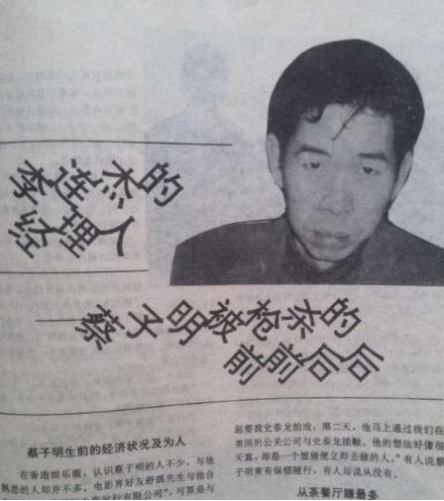 李连杰的
经理人
——蔡子明被枪杀的
前前后后
蔡子明生前的经济状况及为人
在香港娱乐圈，认识蔡子明的人不少，与他
熟悉的人却并不多，电影界好友舒琪先生与他合
发行有限公司”，可算是与
起要找史泰龙拍戏，第二天，他马上通过我们在
美国的公关公司与史泰龙接触，他的想法好像很
天真，却是一个想做便立即去做的人。”有人说蔡
子明常有保镖随行，有人却说从没有。
从茶餐厅赚最多